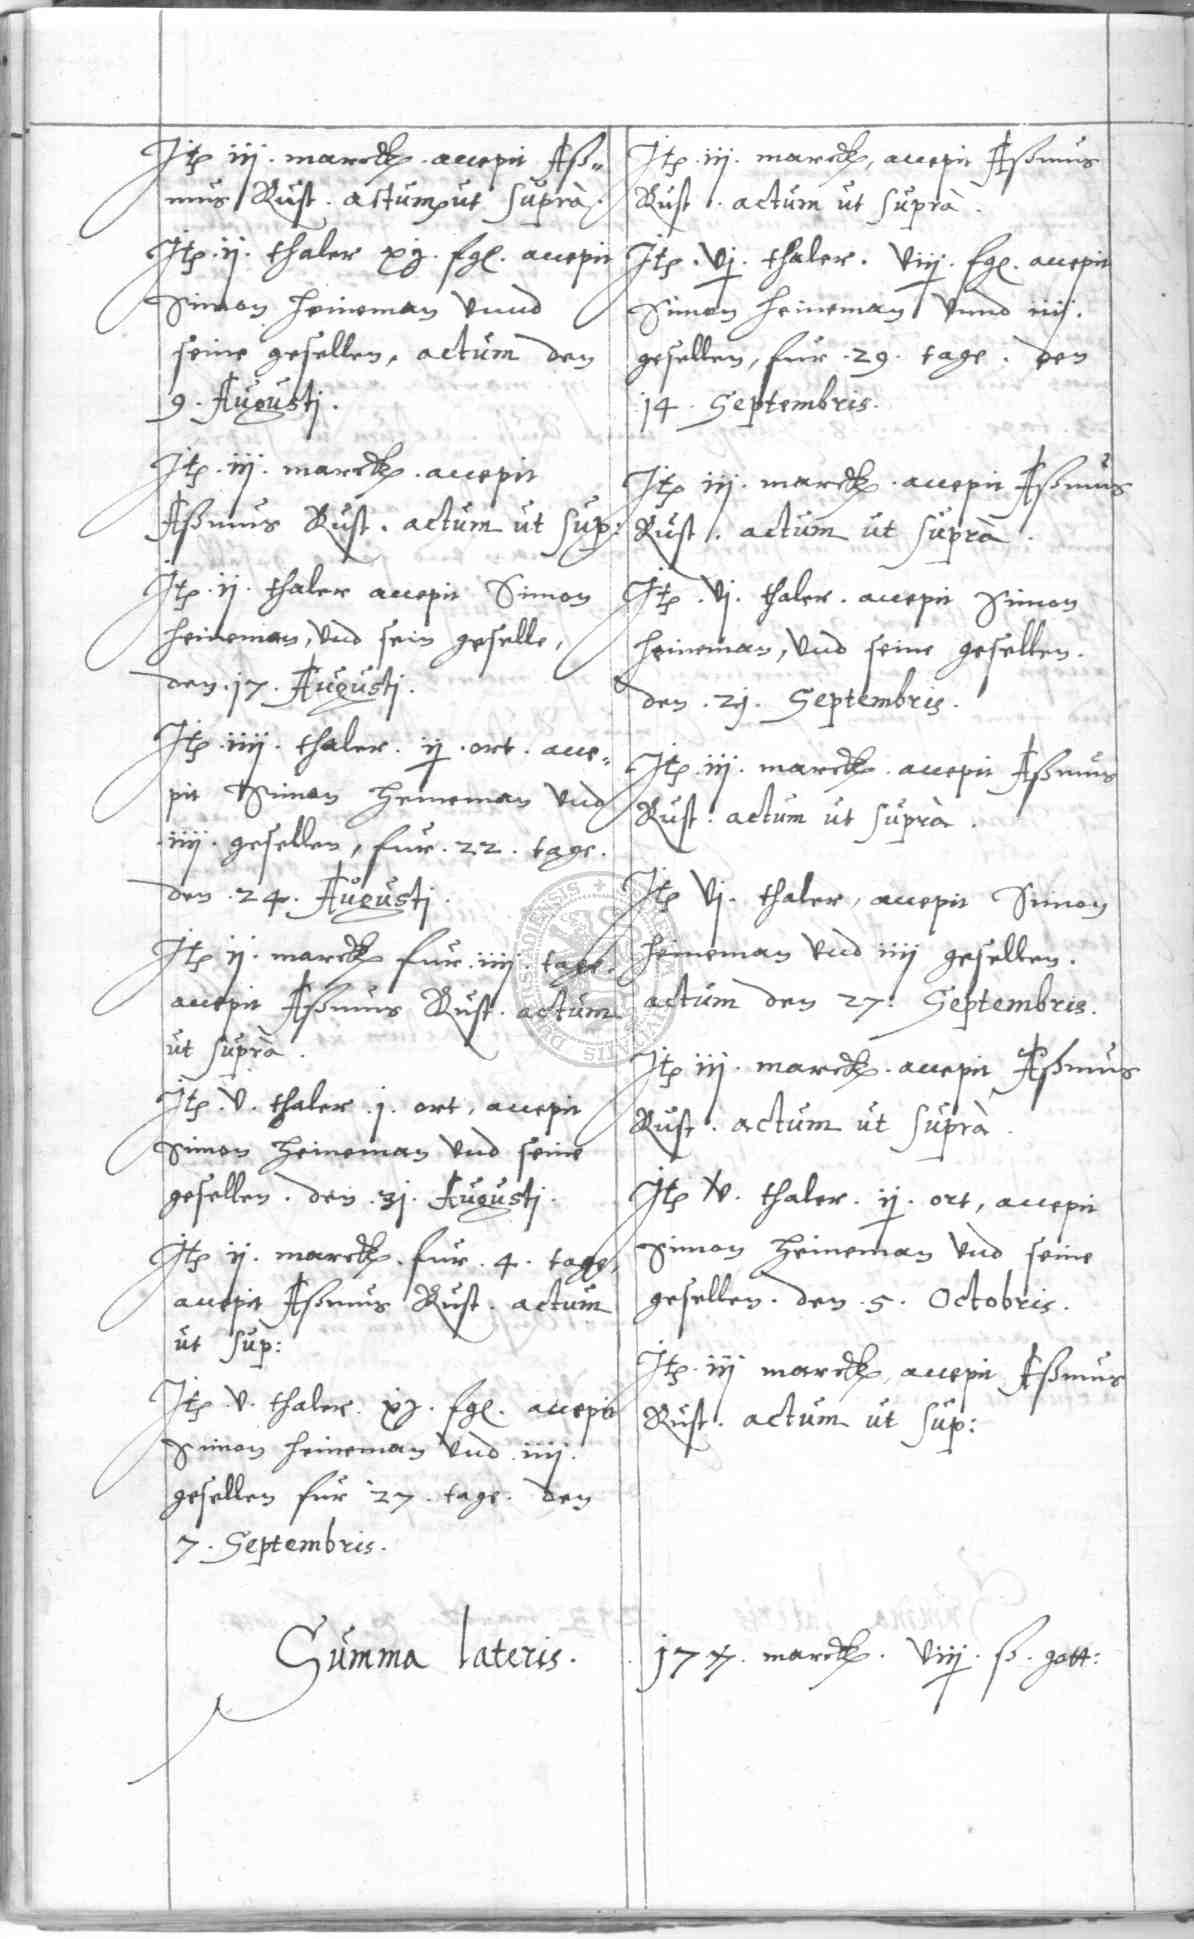 Itꝫ iij. marck. accepit Aß=
mus Rust. actum ut suprà.
Itꝫ. ij. thaler xij. sgl. accepit
Simon Heineman Vnnd
seine gesellen, actum den
9. Augustj.
Itꝫ. iij. marck. accepit
Aßmus Rust. actum ut sup:
Itꝫ. ij. thaler accepit Simon
Heineman, Vnd sein geselle,
den. 17. Augustj.
Itꝫ. iiij. thaler. ij. ort. acce=
pit Simon Heineman Vnd
iiij. gesellen, fur. 22. tage.
den. 24. Augustj.
Itꝫ ij. marck fur. iiij tage.
accepit Aßmus Rust. actum
ut suprà.
Itꝫ. V. thaler. j. ort, accepit
Simon Heineman Vnd seine
gesellen. den. 31. Augustj.
Itꝫ ij. marck. fur. 4. tage,
accepit Aßmus Rust. actum
ut sup:
Itꝫ. V. thaler. xj. sgl. accepit
Simon Heineman Vnd. iiij.
gesellen fur 27. tage. den
7. Septembris.
Itꝫ. iij. marck, accepit Aßmus
Rust. actum ut suprà.
Itꝫ. Vj. thaler. Viij. sgl. accepit
Simon Heineman Vnnd iiij.
gesellen, fur. 29. tage. den
14. Septembris.
Itꝫ iij. marck. accepit Aßmus
Rust. actum ut suprà.
Itꝫ. Vj. thaler. accepit Simon
Heineman, Vnd seine gesellen.
den. 21. Septembris.
Itꝫ. iij. marck. accepit Aßmus
Rust. actum ut suprà.
Itꝫ Vj. thaler, accepit Simon
Heineman Vnd iiij gesellen.
actum den 27. Septembris.
Itꝫ iij. marck. accepit Aßmus
Rust. actum ut suprà.
Itꝫ V. thaler. ij. ort, accepit
Simon Heineman Vnd seine
gesellen. den. 5. Octobris.
Itꝫ. iij marck, accepit Aßmus
Rust. actum ut sup:
Summa lateris. marck. Viij. ß. gott: